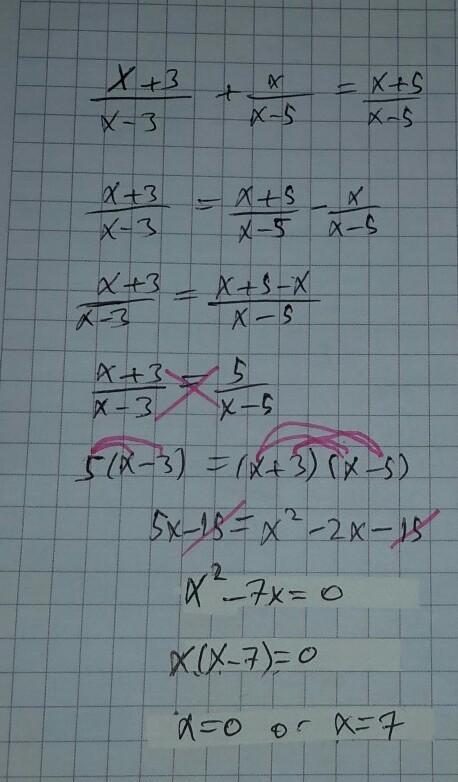 x+3/x-3 + x/x-5 = x+5/x-5
x+3/x-3 = x+5/x-5 - x/x-5
x+3/x-3 = x+5-x/x-5
x+3/x-3 = 5/x-5
5(x-3) = (x+3)(x-5)
5x-15 = x²-2x-15
x²-7x=0
x(x-7)=0
x=0 or x=7